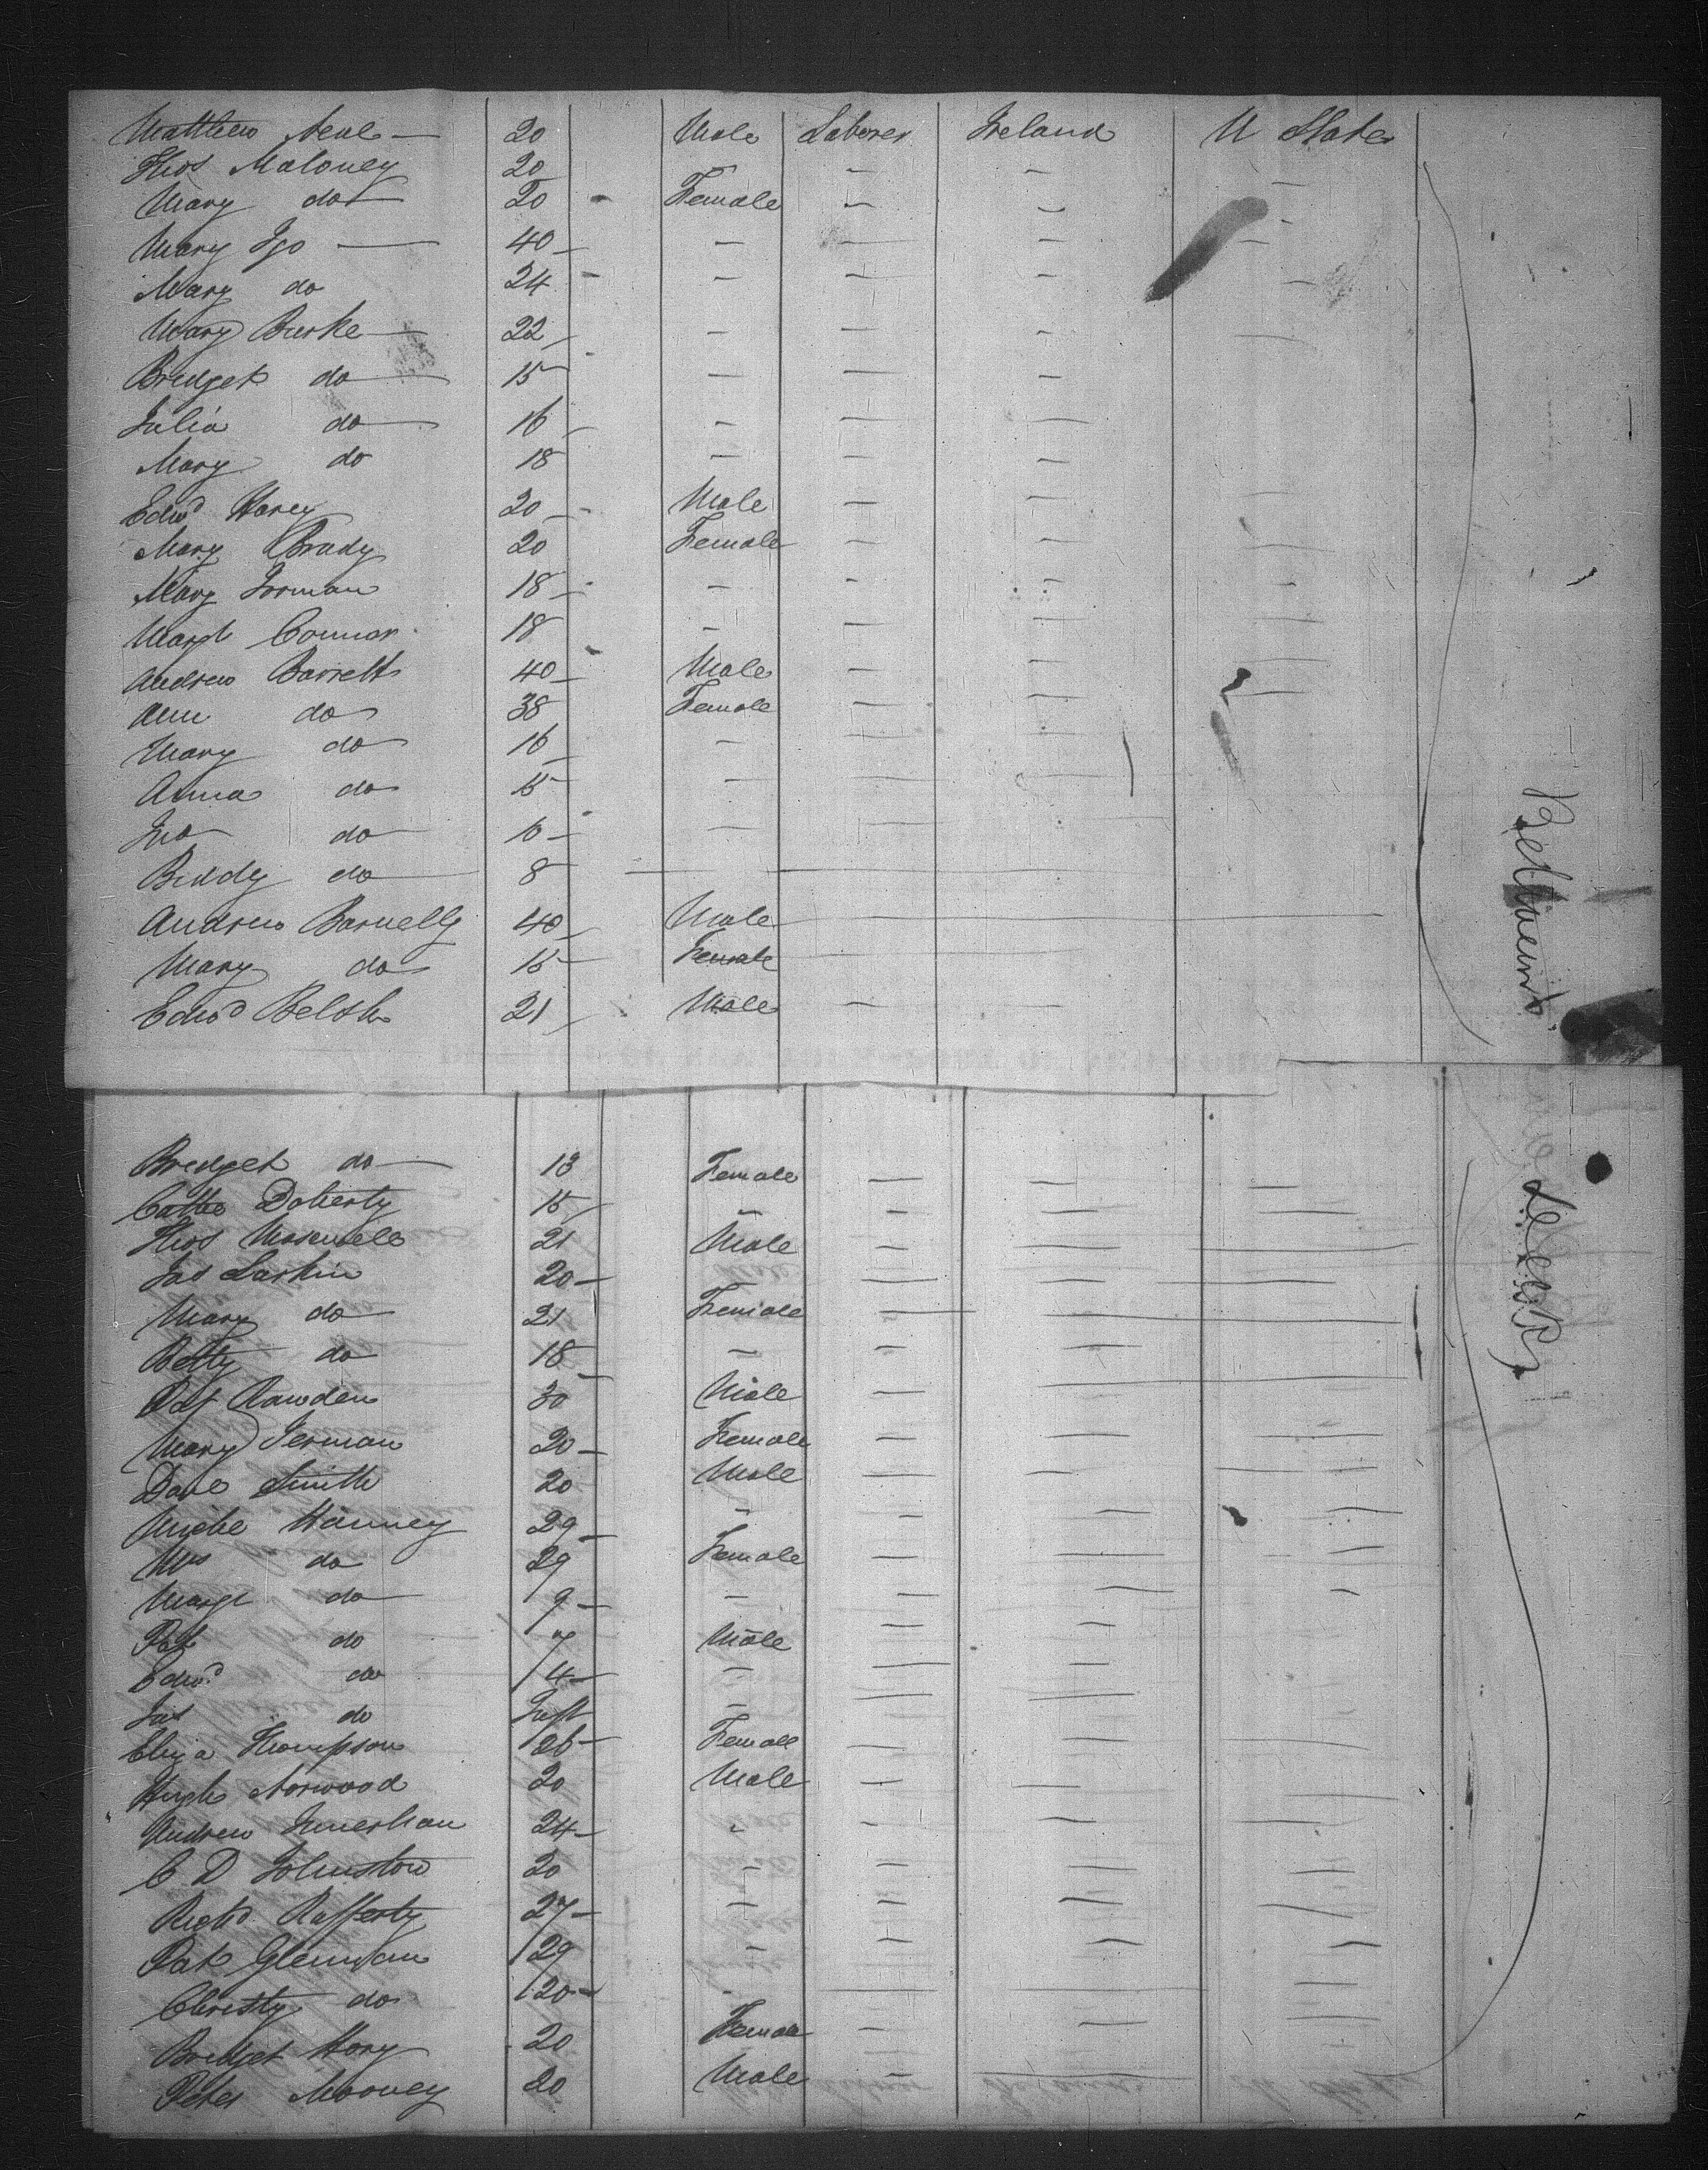 Matthew Neal — 20 Male Laborer Ireland U States
Thos Maloney 20 — —
Mary do 20 - Female — — —
Mary Igo — 40 — — — — —
Mary do 24 - — — — —
Mary Burke — 22 — — — —
Bridget do — 15 — — —
Julia do — 16 — — —
Mary do 18 — — —
Edwd Harey 20 — Male — — —
Mary Brady 20 Female — — —
Mary Gorman 18 — — — — —
Margt Connor 18 — — — —
Andrew Barrett 40 — Male — — —
Ann do 38 Female — — —
Mary do 16 — — —
Anna do 15 — — —
Jno do 10 — — — —
Biddy do 8 — — —
Andrew Barnelly 40 Male — — —
Mary do 15 — Female — —
Edwd Belsh 21 Male — —
Between
Bridget do — 13 Female — — —
Cathe Doherty 15 — — — —
Thos Maxwell 21 Male — — —
Jas Larkin 20 — — — — —
Mary do 21 Female — — —
Betty do 18 — — — —
Pat Rawden 30 Male — — —
Mary Jerman 20 — Female — — —
Dave Smith 20 Male — — —
Miche Hanney 29 — — — — —
Mrs do 29 Female — — —
Margt do 9 — — — — —
Pat do 7 Male — —
Edwd do 4 — — — —
Jas do Inft — — —
Eliza Thompson 26 — Female — — —
Hugh Norwood 20 Male — — —
Andrew 24 — — — — —
C D Johnston 20 — — — —
Richd Rafferty 27 — — — — —
Pat Glennan 29 — — — —
Christy do 20 — — — —
Bridget Hory 20 Female — — —
Peter Mooney 20 Male — —